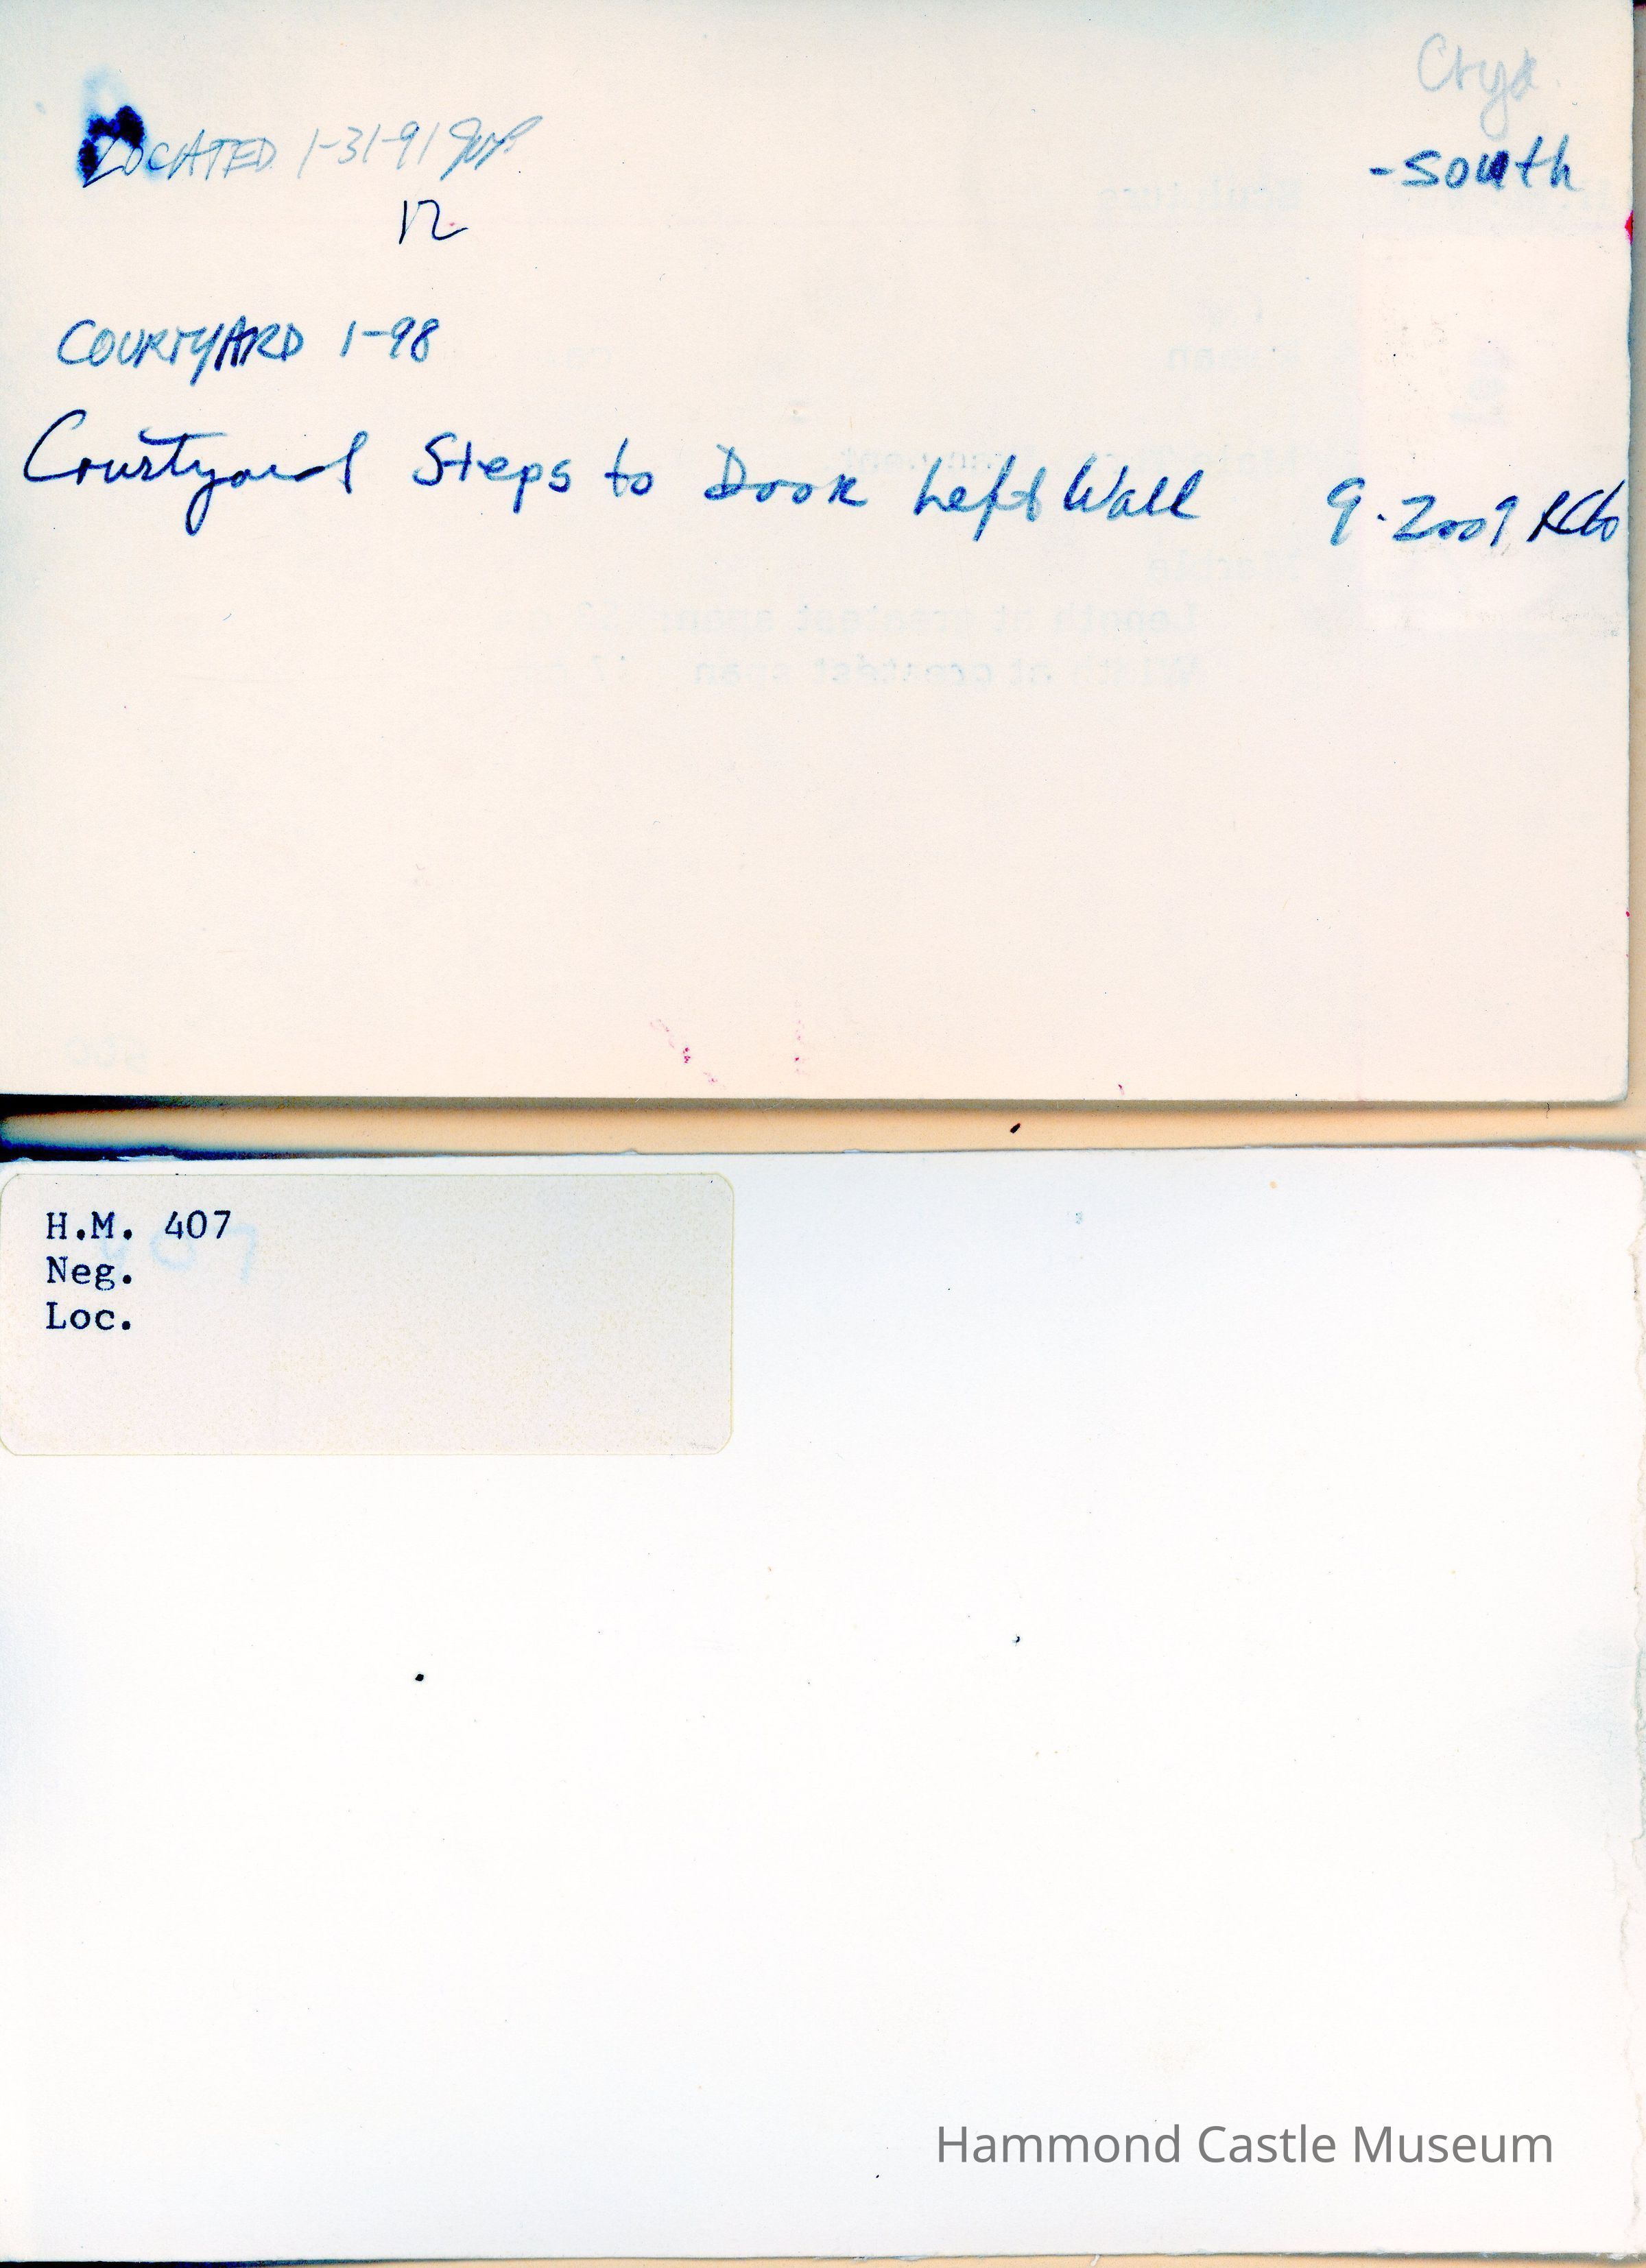 Ctyd.
-South
LOCATED 1-31-91
12
COURTYARD 1-98
Courtyard Steps to Door Left Wall 9.2009
H.M. 407
Neg.
Loc.
Hammond Castle Museum